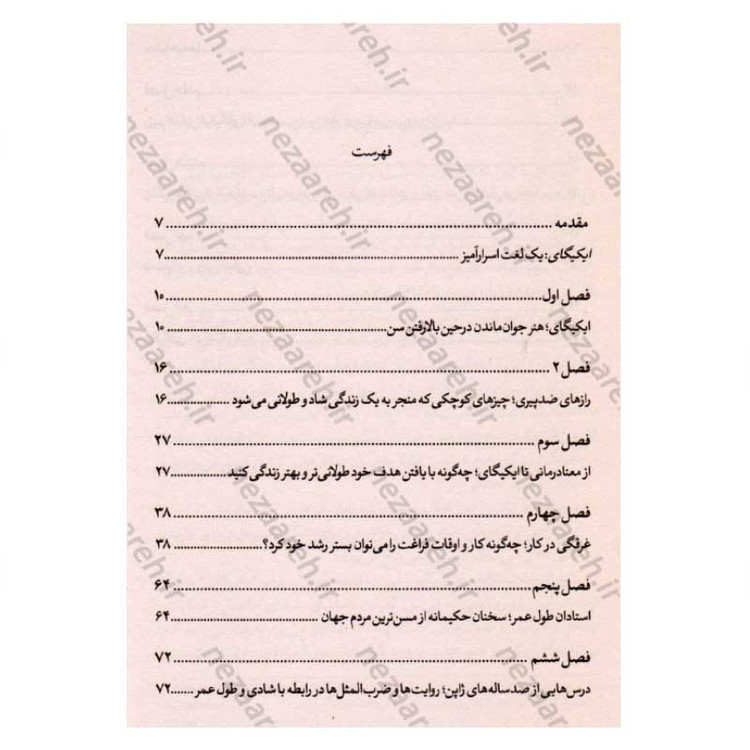 فهرست
مقدمه ........ ۷
ایکیگای: یک لغت اسرارآمیز ........ ۷
فصل اول ........ ۱۰
ایکیگای؛ هنر جوان ماندن در حین بالا رفتن سن ........ ۱۰
فصل ۲ ........ ۱۶
رازهای ضدپیری؛ چیزهای کوچکی که منجر به یک زندگی شاد و طولانی می‌شود ........ ۱۶
فصل سوم ........ ۲۷
از معنادرمانی تا ایکیگای؛ چه‌گونه با یافتن هدف خود طولانی‌تر و بهتر زندگی کنید ........ ۲۷
فصل چهارم ........ ۳۸
غرقگی در کار؛ چه‌گونه کار و اوقات فراغت را می‌توان بستر رشد خود کرد؟ ........ ۳۸
فصل پنجم ........ ۶۴
استادان طول عمر؛ سخنان حکیمانه از مسن‌ترین مردم جهان ........ ۶۴
فصل ششم ........ ۷۲
درس‌هایی از صدساله‌های ژاپن؛ روایت‌ها و ضرب‌المثل‌ها در رابطه با شادی و طول عمر ........ ۷۲
nezaareh.ir